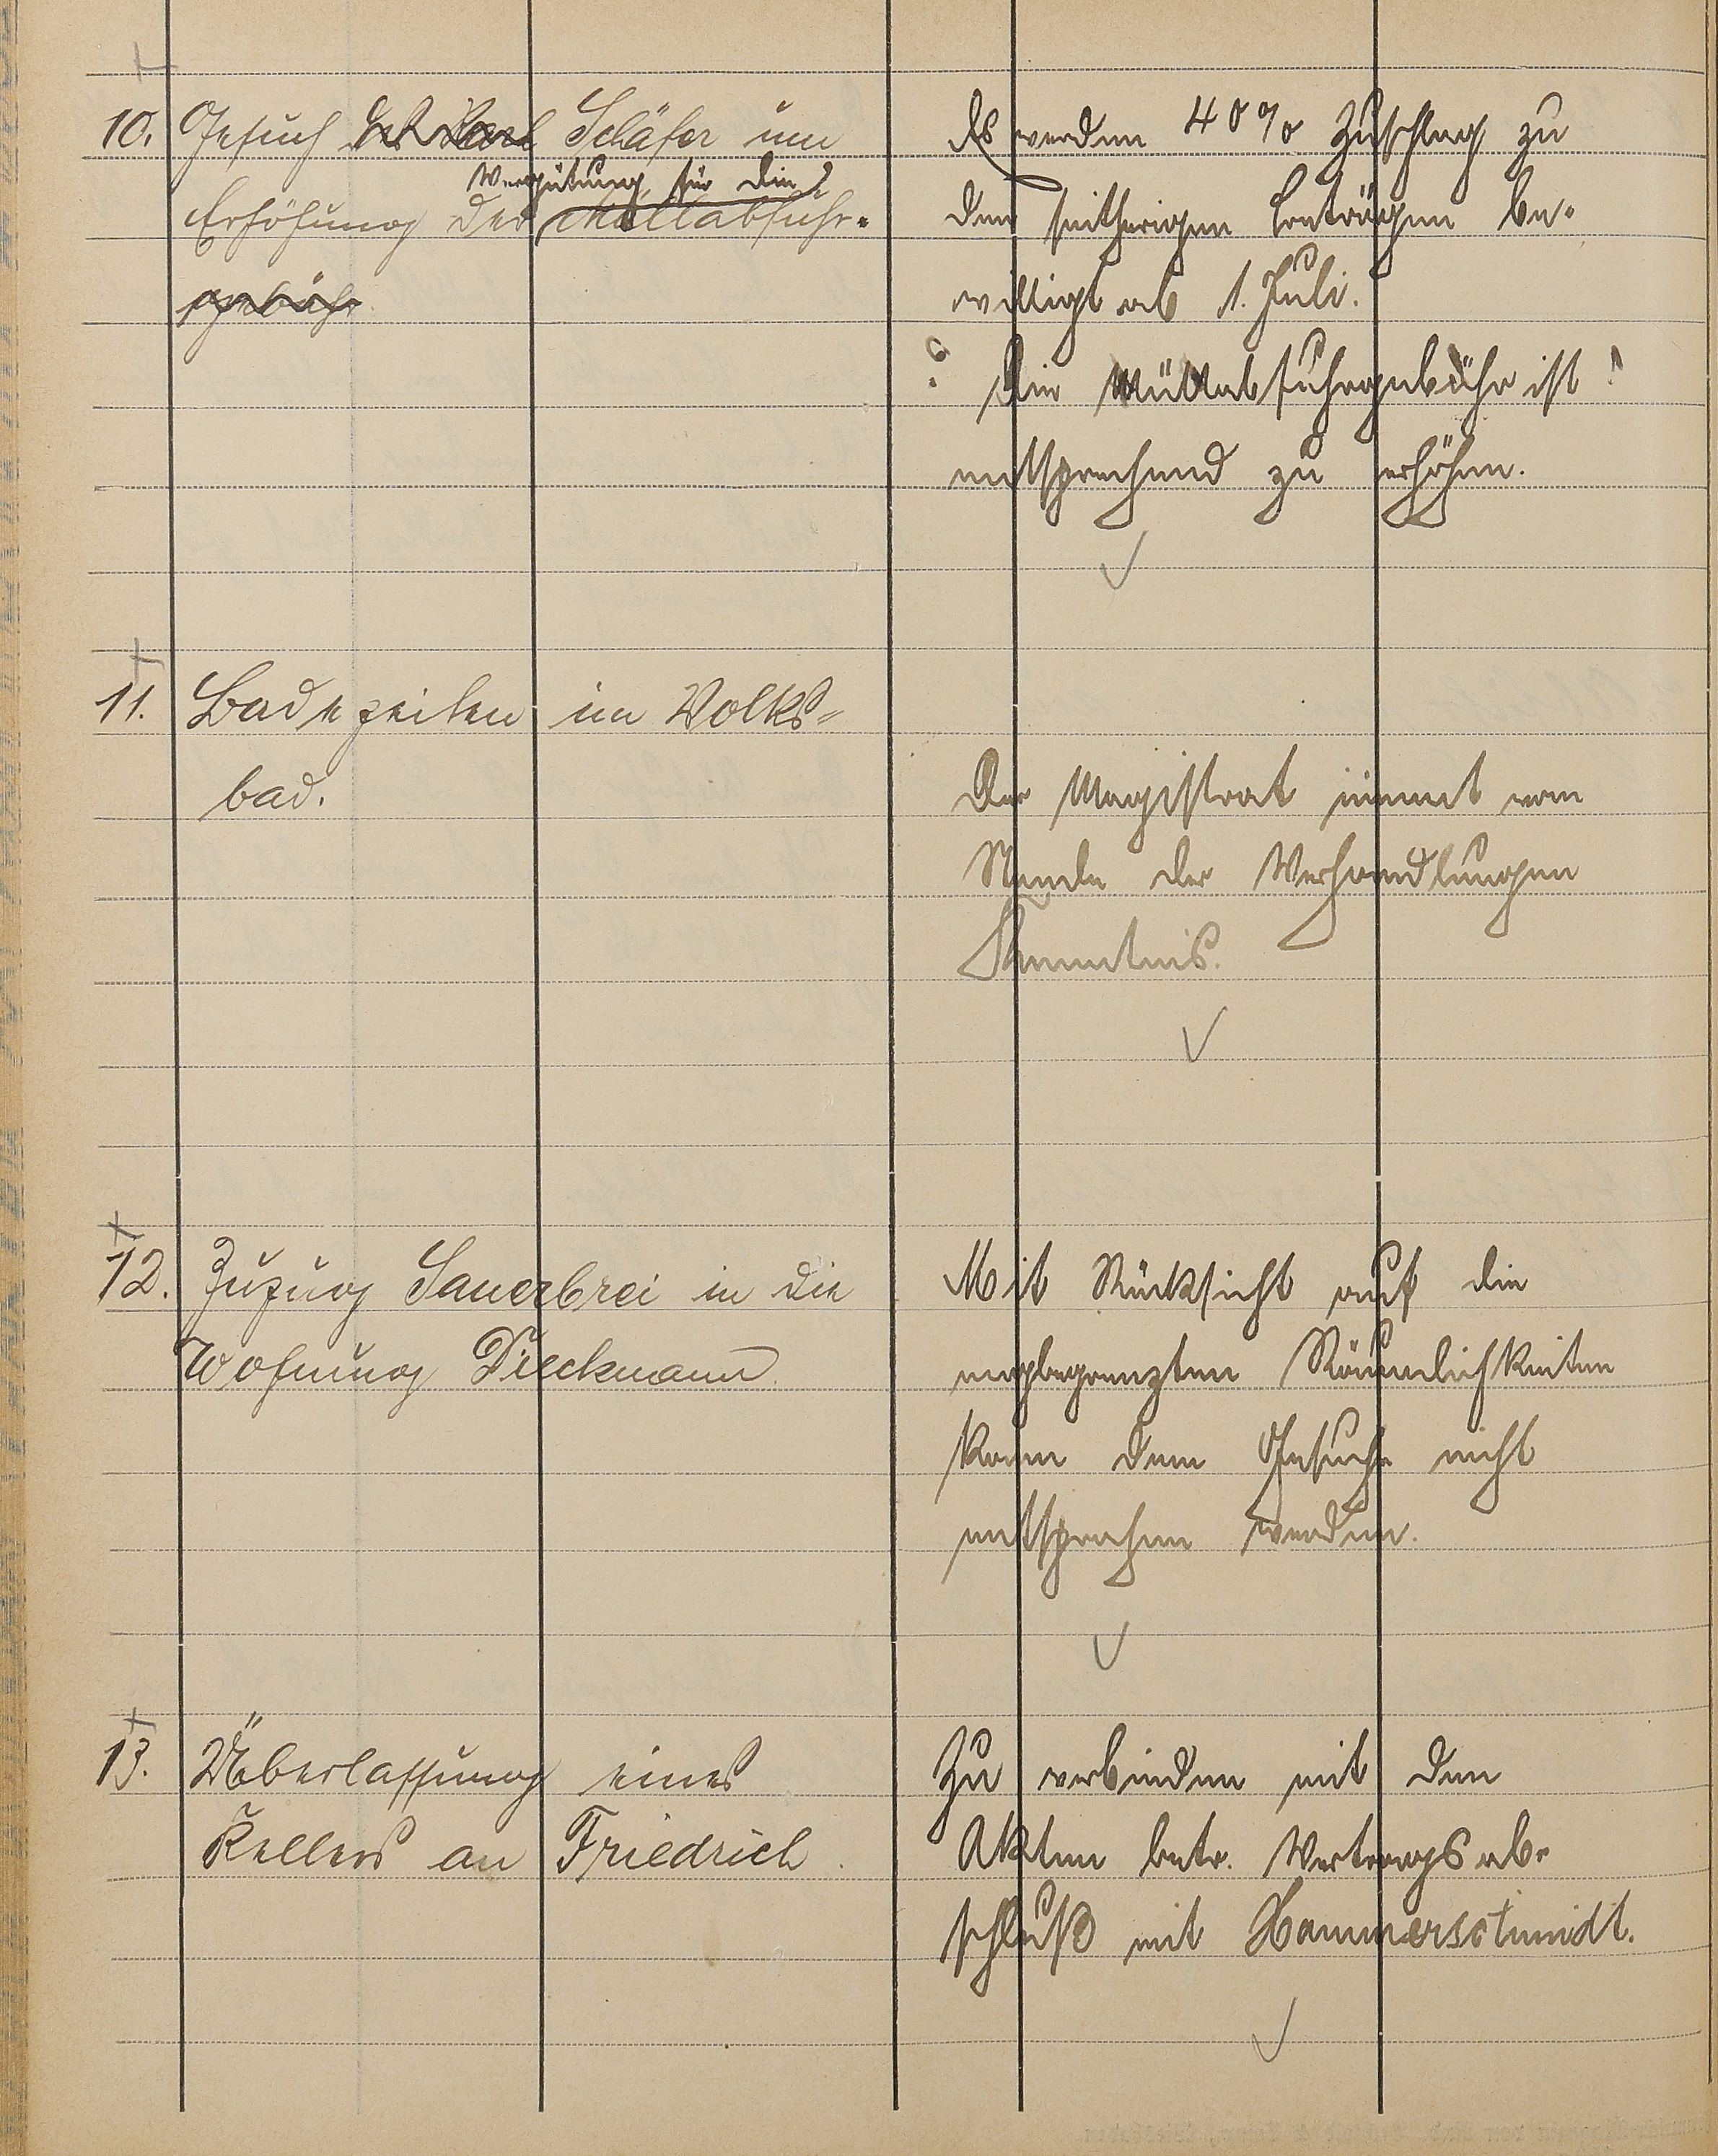 10. Gesuch des Karl Schäfer um
Vergütung für die
Erhöhung der Müllabfuhr-
gebühr
Es werden 40% Zuschlag zu
den seitherigen Beträgen be-
willigt ab 1. Juli.
Die Müllabfuhrgebühr ist
entsprechend zu erhöhen.
11. Badezeiten im Volks-
bad.
Der Magistrat nimmt vom
Stande der Verhandlungen
Kenntnis.
12. Zuzug Sauerbrei in die
Wohnung Dieckmann
Mit Rücksicht auf die
engbegrenzten Räumlichkeiten
kann dem Gesuche nicht
entsprochen werden.
13. Überlassung eines
Kellers an Friedrich.
Zu verbinden mit den
Akten betr. Vertragsab-
schluß mit Hammerschmidt.